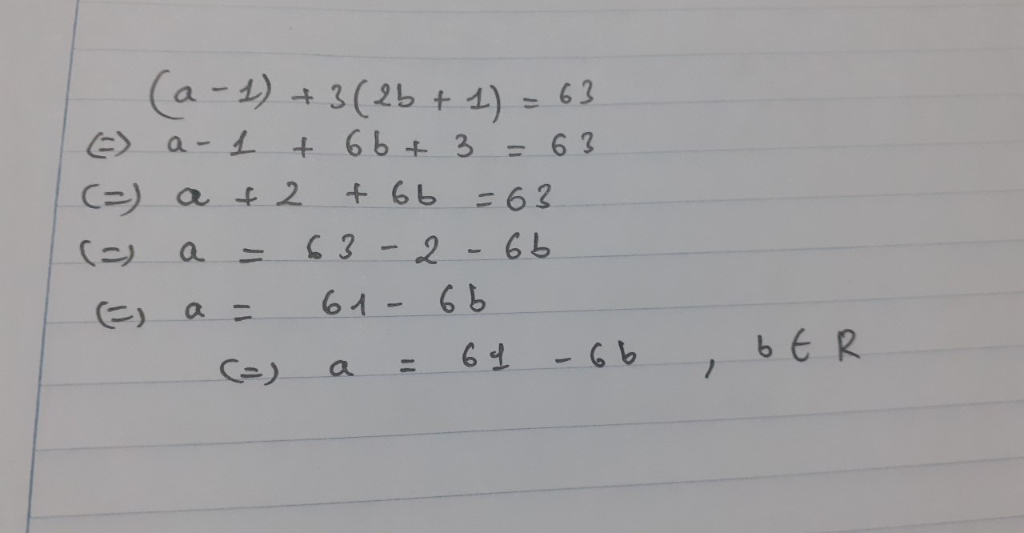 (a - 1) + 3(2b + 1) = 63
(=) a - 1 + 6b + 3 = 63
(=) a + 2 + 6b = 63
(=) a = 63 - 2 - 6b
(=) a = 61 - 6b
(=) a = 61 - 6b , b ∈ R